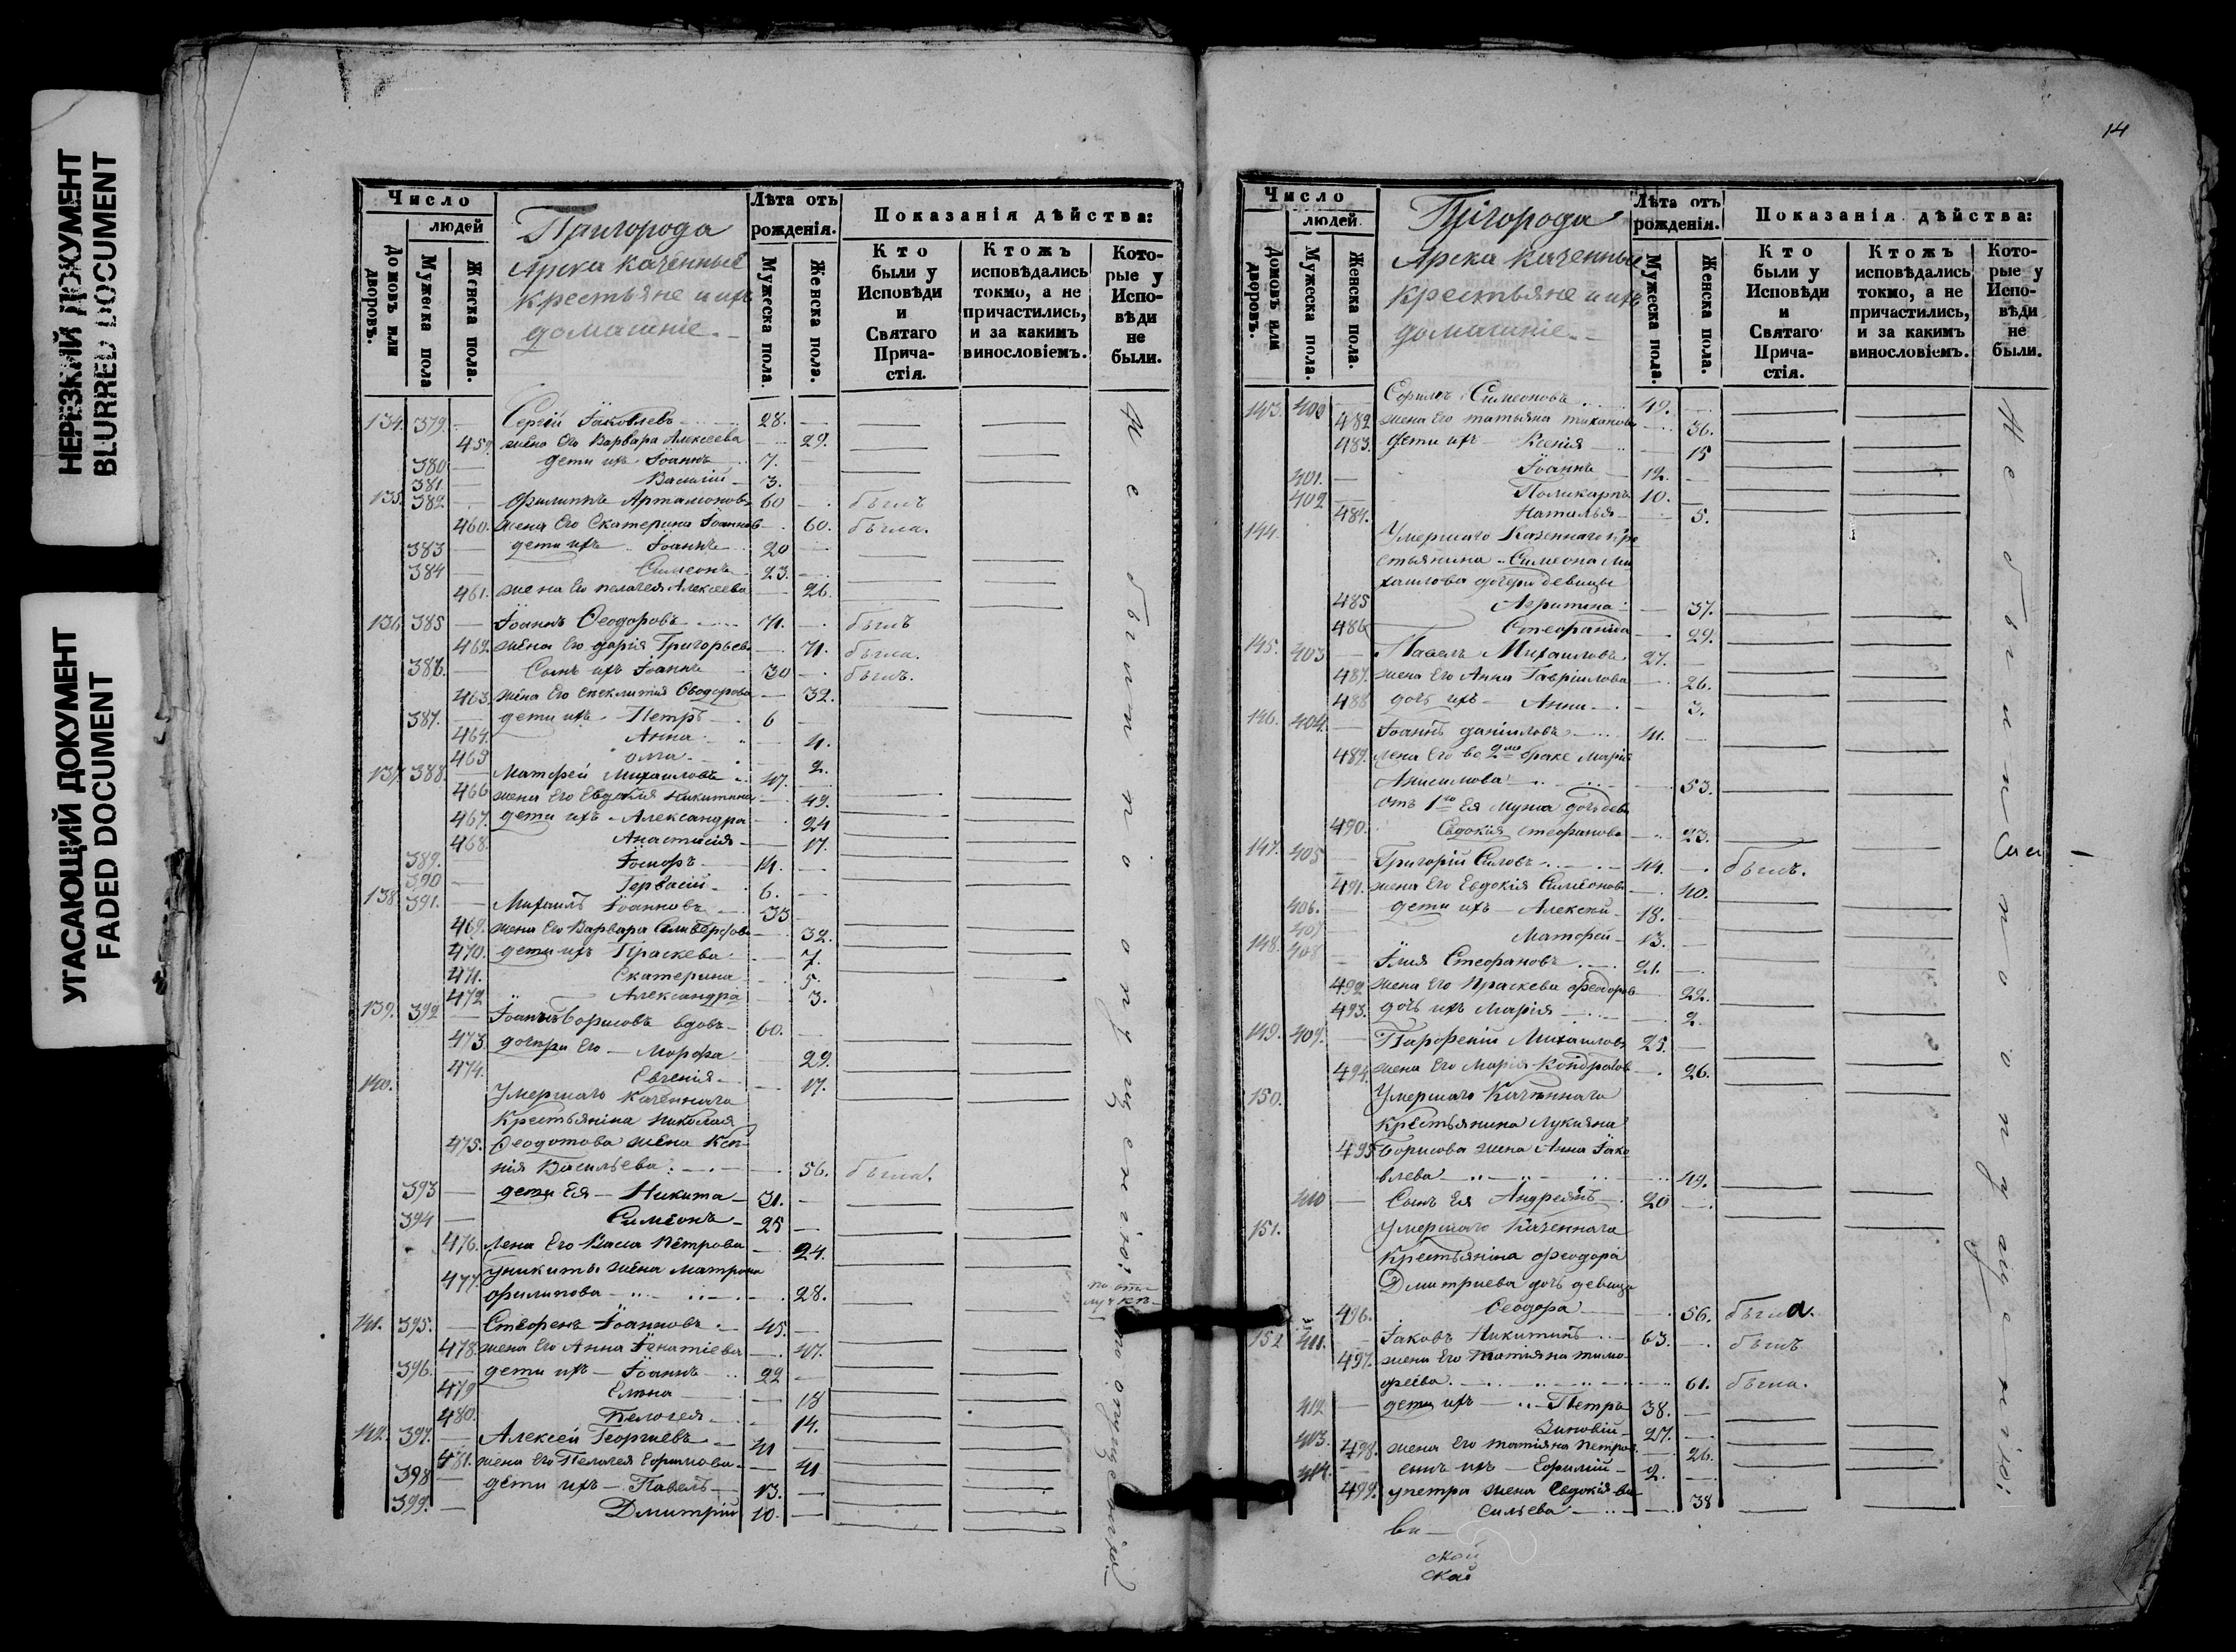 НЕРЕЗКИЙ ДОКУМЕНТ
BLURRED DOCUMENT
УГАСАЮЩИЙ ДОКУМЕНТ
FADED DOCUMENT
Число
людей
Домовъ или дворовъ.
Мужеска пола
Женска пола.
Пригорода
Арска каченные
крестьяне и ихъ
домашніе.
Лѣта отъ рожденія.
Мужеска пола.
Женска пола.
Показанія дѣйства:
Кто были у Исповѣди и Святаго Прича-стія.
Ктожъ исповѣдались токмо, а не причастились, и за какимъ винословіемъ.
Кото-рые у Испо-вѣди не были.
134. 379. Сергій Іаковлевъ 28.
459. жена Его Варвара Алексеева 29.
380 дети ихъ Іоаннъ 7.
381. Василій 3.
135. 382. Филиппъ Артамоновъ 60 былъ
460. жена Его Екатерина Іоаннов 60. была.
383 дети ихъ Іоаннъ 20
384 Симеонъ 23.
461. жена Его пелагея Алексеева 26.
136. 385 Іоаннъ Феодоровъ 71. былъ
462. жена Его дарія Григорьев 71. была.
386. Сынъ ихъ Іоаннъ 30 былъ.
463. жена Его Феодорова 32.
387. дети ихъ Петръ 6
464. Анна 4.
465 2.
137. 388. Матфей Михаиловъ 47.
466 жена Его Евдокия Никитина 49.
467. дети ихъ Александра 24
468. Анастасія 17.
389. 14.
390 Гервасій 6.
138. 391. Михаилъ Іоанновъ 33
469. жена Его Варвара 32.
470. дети ихъ Праскева 7.
471. Екатерина 5.
472 Александра 3.
139. 392 Іоаннъ Борисовъ вдовъ 60.
473. дочери Его Марфа 29.
474. Евгенія 17.
140. Умершаго Каченнаго
Крестьяніна Николая
475. Феодотова жена Ксе-
нія Васильева 56. была.
393 дети Ея Никита 31.
394 Симеонъ 25
476. Жена Его Васса Петрова 24.
477. у никиты жена Матрона
филипова 28.
141. 395. Стефенъ Іоанновъ 45.
478. жена Его Анна Игнатіева 47.
396. дети ихъ Іоаннъ 22
479 Елена 18
480. Пелагея 14.
142. 397. Алексей Георгиевъ 41
481. жена Его Пелагея Ефимова 41
398 дети ихъ Павелъ 13.
399. Дмитрій 10.
Не были по опущенію.
14
Число
людей
Домовъ или дворовъ.
Мужеска пола.
Женска пола.
Прігорода
Арска каченные
крестьяне и ихъ
домашніе.
Лѣта отъ рожденія.
Мужеска пола.
Женска пола.
Показанія дѣйства:
Кто были у Исповѣди и Святаго Прича-стія.
Ктожъ исповѣдались токмо, а не причастились, и за какимъ винословіемъ.
Кото-рые у Испо-вѣди не были.
143. 400 Симеоновъ 49.
482 жена Его татьяна 36.
483. дети ихъ Ксенія 15
401. Іоаннъ 12.
402 Поликарпъ 10.
484. Наталья 5.
144. Умершаго Каченнаго кре
стьянина Симеона Ми
хаилова дочери девицы
485 Агрипина 37.
486 Стефанида 29.
145. 403 Павелъ Михаиловъ 27.
487. жена Его Анна Гаврилова 26.
488 дочь ихъ Анна 3.
146. 404. Іоаннъ даніиловъ 41.
489. жена Его во 2мъ браке Марія
Анисимова 53.
отъ 1го Ея мужа дочь дев
490. Евдокія Стефанова 23.
147. 405 Григорій Силовъ 44. былъ.
491. жена Его Евдокія Симеонов 40.
406. дети ихъ Алексей 18.
407 Матфей 13.
148. 408 Илия Стефановъ 21.
492 жена Его Праскева феодоров 22.
493. дочь ихъ Марія 2.
149. 409. Парфеній Михаиловъ 25.
494. жена Его Марія Кондратов 26.
150. Умершаго Каченнаго
Крестьянина Лукияна
495 Борисова жена Анна Іако
влева 49.
410 Сынъ Ея Андреянъ 20
151. Умершаго Каченнаго
Крестьяніна феодора
Дмитриева дочь девица
496. Феодора 56. была.
152 411. Іаковъ Никитинъ 63. былъ
497. жена Его татияна тимо-
феева 61. была.
412 дети ихъ Петръ 38.
413. Зиновій 27.
498. жена Его татияна петров 26.
414. сынъ ихъ Ефимій 2.
499. у петра жена Евдокія ва
сильева 38
Не были по опущенію.